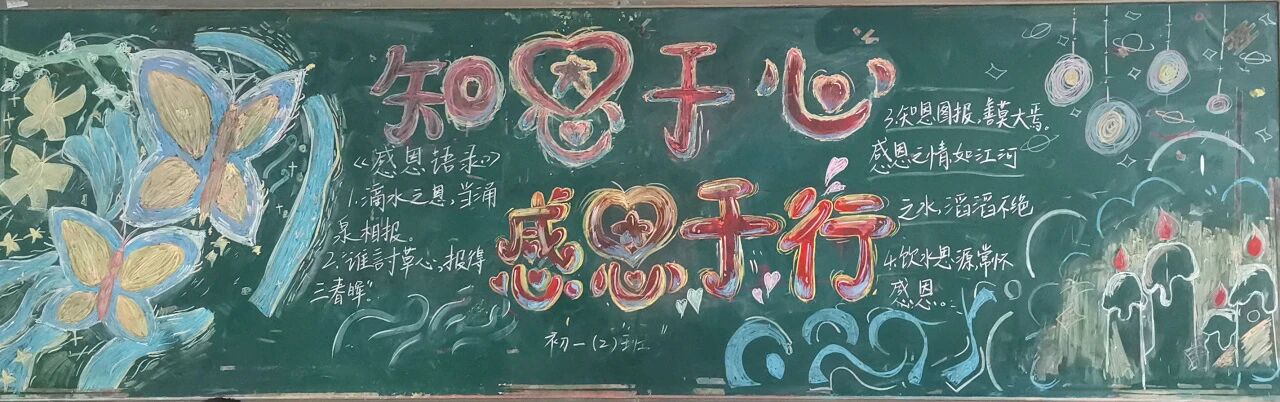 知恩于心
感恩于行
《感恩语录》
1.滴水之恩,当涌
泉相报。
2.谁言寸草心,报得
三春晖."
3.知恩图报,善莫大焉。
感恩之情如江河
之水,滔滔不绝
4.饮水思源,常怀
感恩。
初一(2)班"